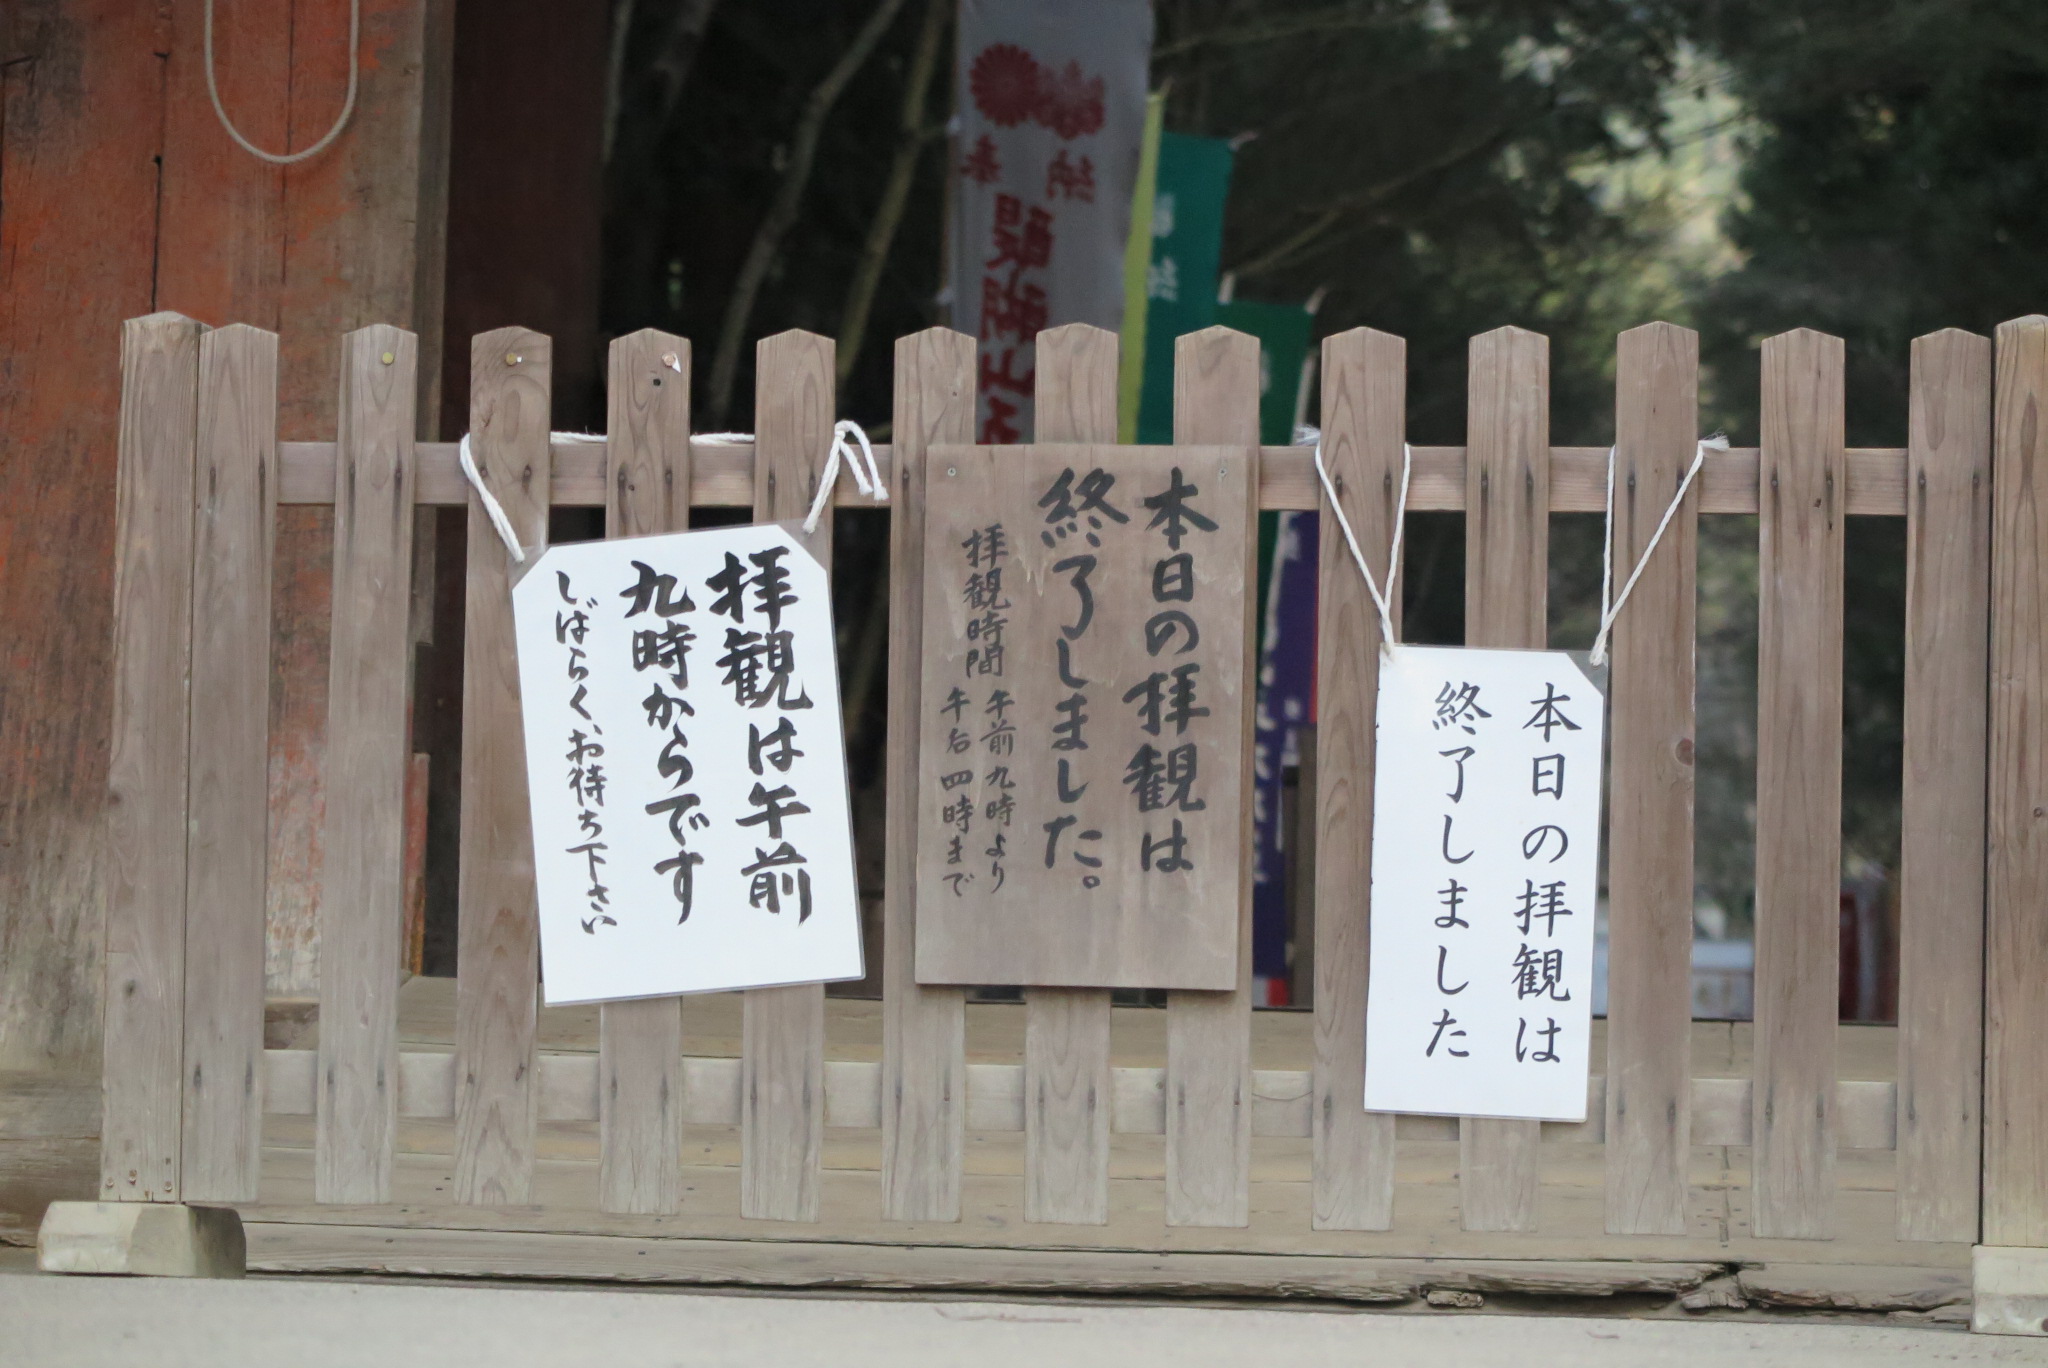 奉納
醍醐山
拝観は午前
九時からです
しばらく、お待ち下さい
本日の拝観は
終了しました。
拝観時間
午前九時より
午后四時まで
本日の拝観は
終了しました